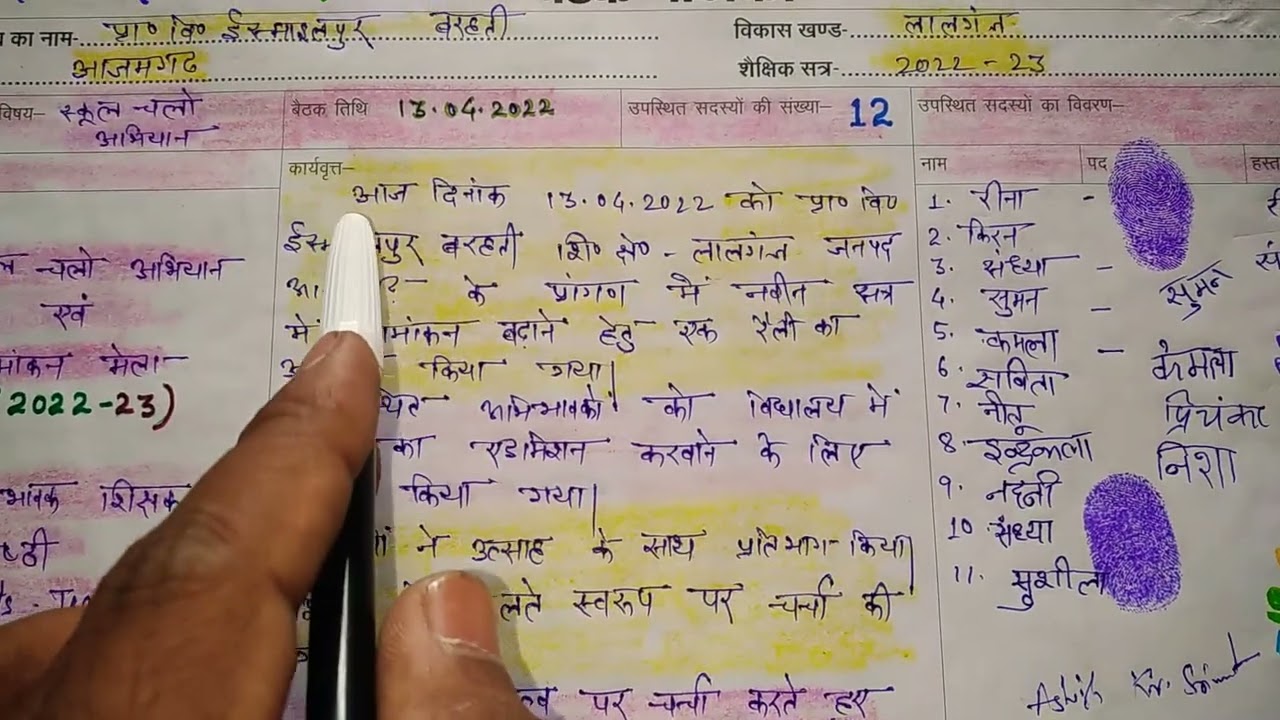 का नाम- प्रा० वि० ईस्माइलपुर बरहती विकास खण्ड- लालगंज
आजमगढ़ शैक्षिक सत्र- 2022-23
विषय- स्कूल चलो अभियान
बैठक तिथि 13.04.2022
उपस्थित सदस्यों की संख्या- 12
उपस्थित सदस्यों का विवरण-
चलो अभियान
एवं
मेला
2022-23)
शिक्षक
कार्यवृत्त-
आज दिनांक 13.04.2022 को प्रा० वि०
बरहती शि० क्षे० - लालगंज जनपद
के प्रांगण में नवीन सत्र
में बढ़ाने हेतु एक रैली का
किया गया।
अभिभावकों को विद्यालय में
का एडमिशन करवाने के लिए
किया गया।
ने उत्साह के साथ प्रतिभाग किया।
स्वरूप पर चर्चा की
पर चर्चा करते हुए
नाम पद
1. रीना -
2. किरन
3. संध्या -
4. सुमन
5. कमला -
6. सबिता
7. नीतू
8. इन्द्रकला
9. नन्दनी
10 संध्या
11. सुशीला
सुमन
केमला
प्रियंका
निशा